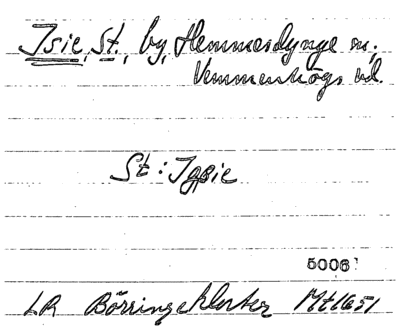 Isie, St., by, Hemmesdynge sn,
Vemmenhögs hd.
St: Igsie
5006
LR Börringekloster Mt1651